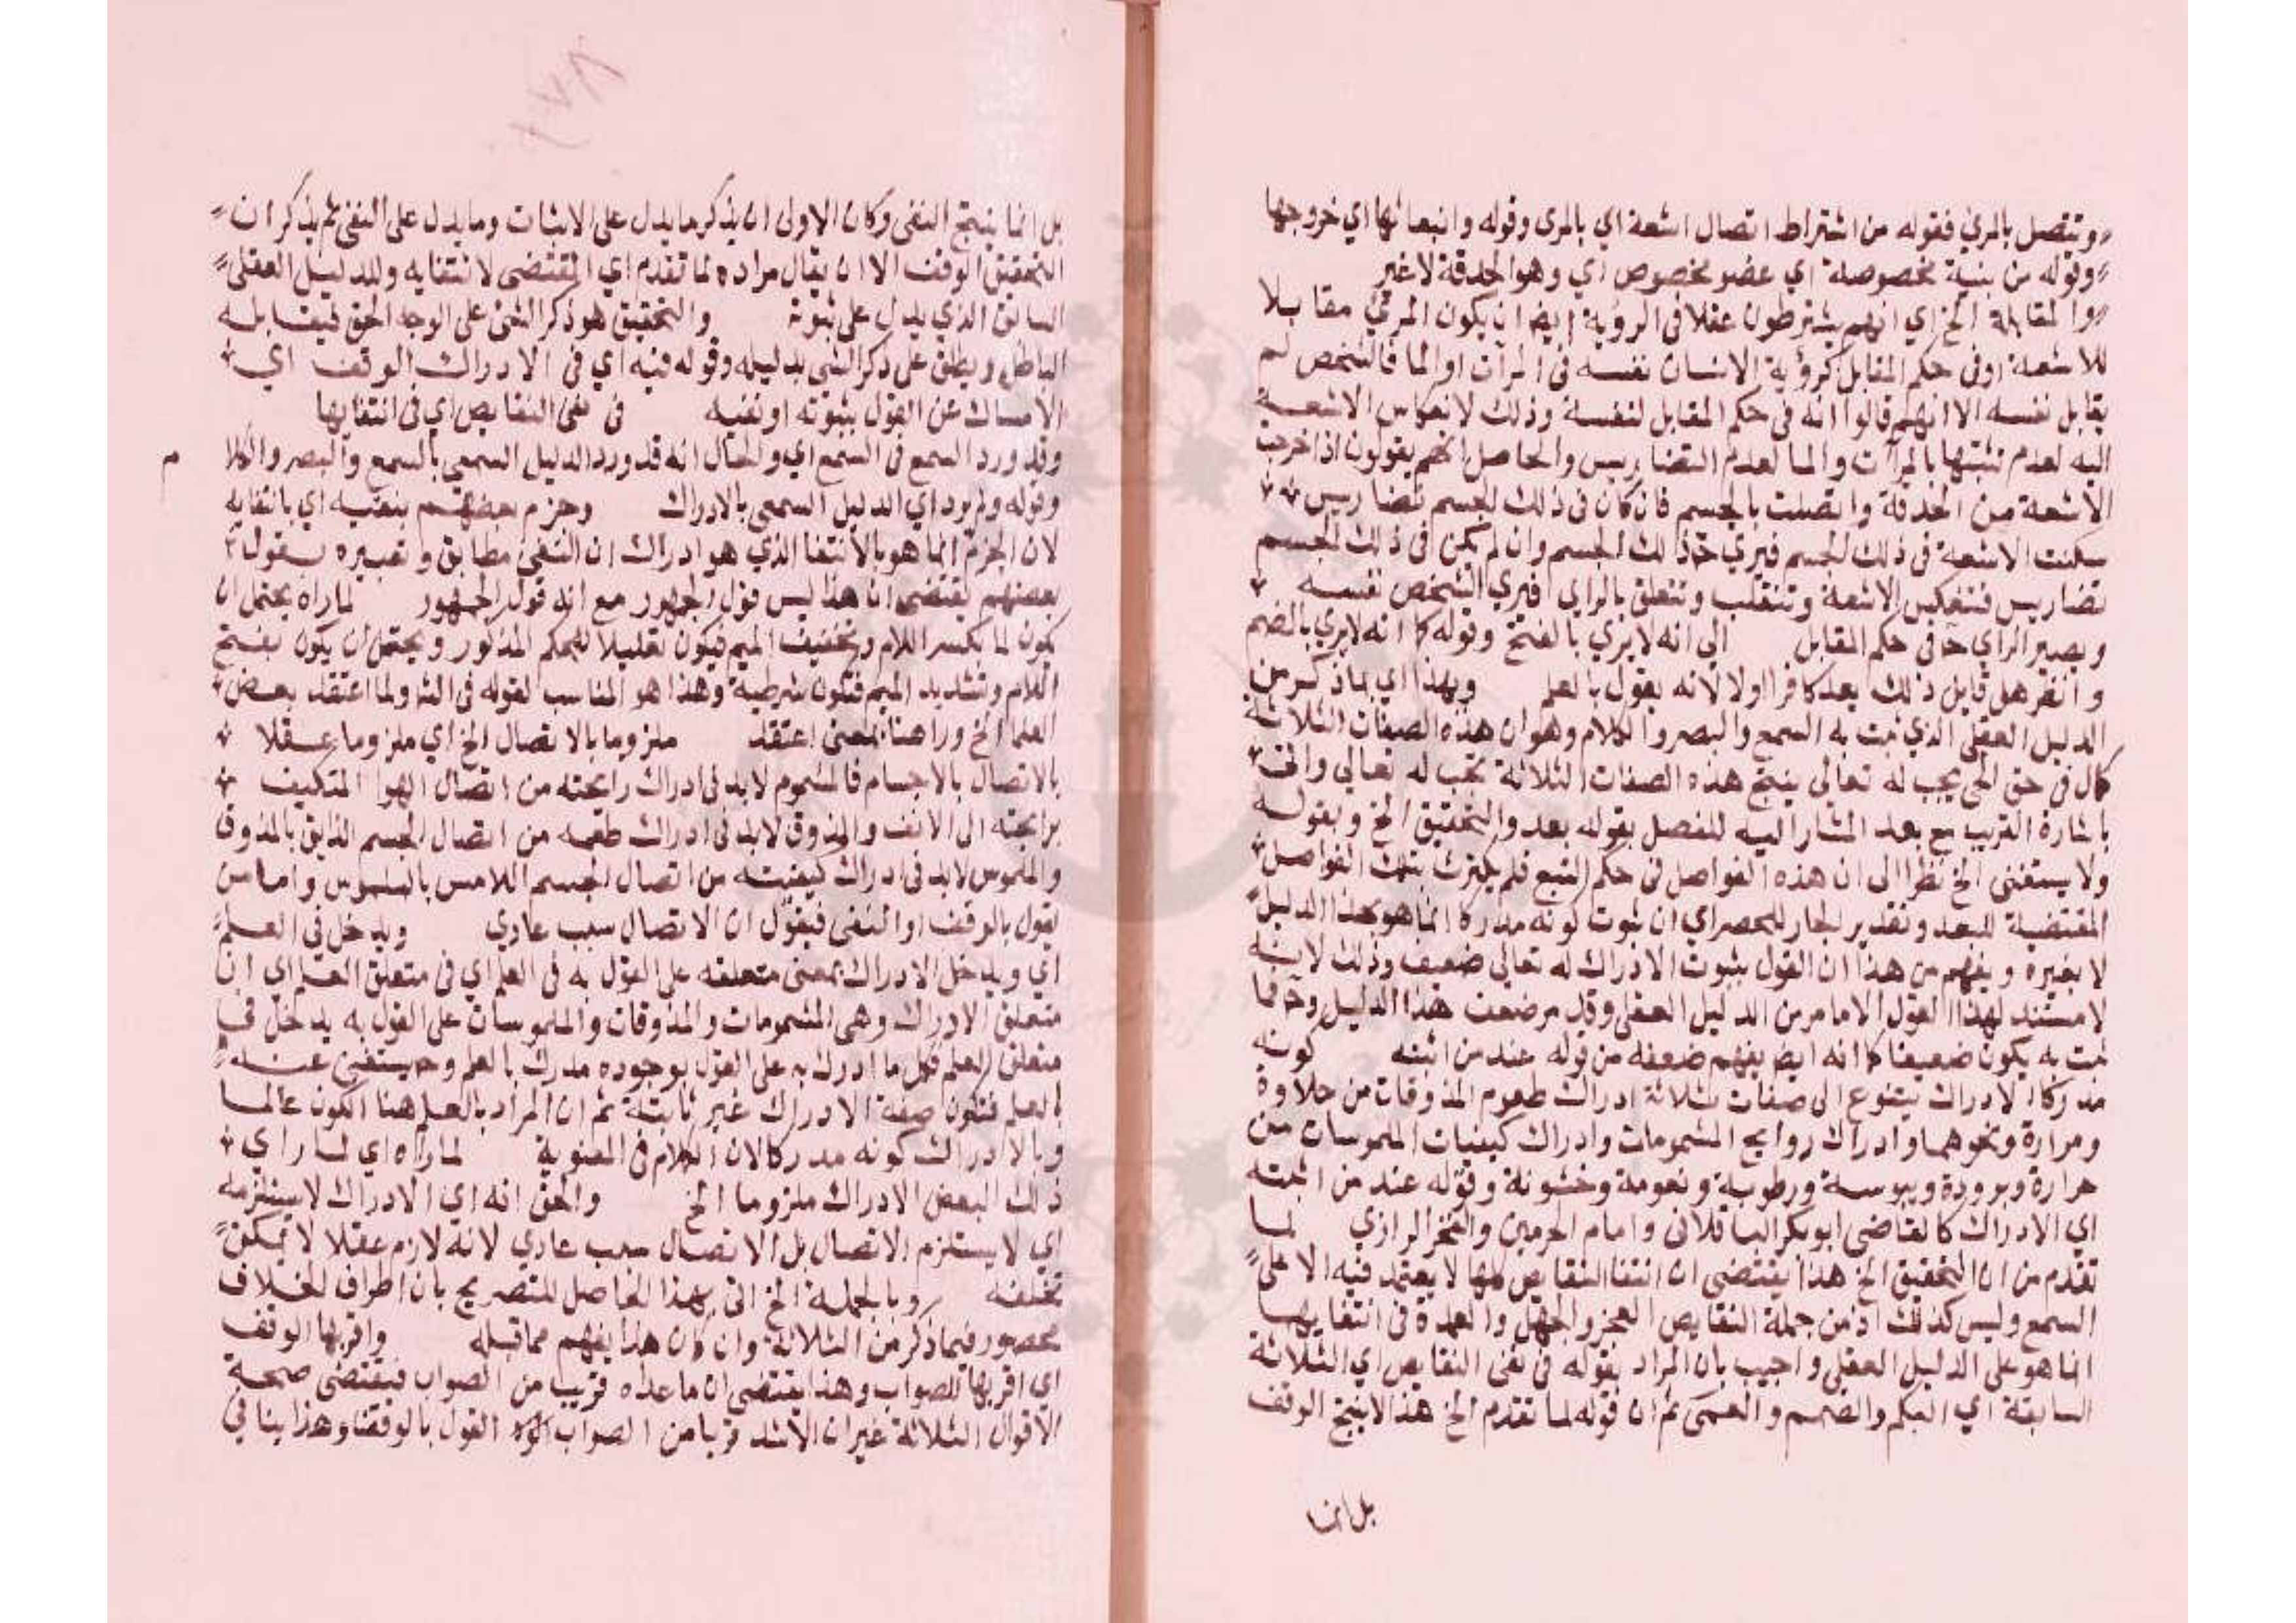 وتتصل بالمرئ فقوله من اشتراط اتصال اشعة اي بالمرى وقوله وانبعاثها اي خروجها
وقوله من بنية مخصوصة اي عضو مخصوص اي وهو الحدقة لا غير
والمقابلة الخ اي انهم يشترطون عقلا فى الروية ايضا ان يكون المرئي مقابلا
للاشعة اوفى حكم المقابل كرؤية الانسان نفسه فى المرآت او الما فالشخص لم
يقابل نفسه الا انهم قالوا انه فى حكم المقابل لنفسه وذلك لانعكاس الاشعة
اليه لعدم تثبتها بالمرآت والما لعدم التضاريس والحاصل انهم يقولون اذا خرجت
الاشعة من الحدقة واتصلت بالجسم فان كان فى ذلك الجسم تضاريس
سكنت الاشعة فى ذلك الجسم فيري ح ذلك الجسم وان لم يكن فى ذلك الجسم
تضاريس فتنعكس الاشعة وتنقلب وتتعلق بالراي فيري الشخص نفسه
ويصير الراي ح فى حكم المقابل الى انه لا يري بالفتح وقوله كما انه لا يري بالضم
وانظر هل قايل ذلك يعد كافرا اولا لانه يقول بالعلم وبهذا اي بما ذكر من
الدليل العقلى الذي ثبت به السمع والبصر والكلام وهو ان هذه الصفات الثلاثة
كمال فى حق الحي يجب له تعالى ينتج هذه الصفات الثلاثة تجب له تعالى واتى
باشارة القريب مع بعد المشار اليه للفصل بقوله بعد والتحقيق الخ وبقوله
ولا يستغنى الخ نظرا الى ان هذه الفواصل فى حكم التبع فلم يكترث بتلك الفواصل
المقتضية للبعد وتقدير الجار للحصر اي ان ثبوت كونه مدركا انما هو بهذا الدليل
لا بغيره ويفهم من هذا ان القول بثبوت الادراك له تعالى ضعيف وذلك لانه
لا مستند لهذا القول الا ما مر من الدليل العقلى وقد مر ضعف هذا الدليل وح فما
ثبت به يكون ضعيفا كما انه ايضا يفهم ضعفه من قوله عند من اثبته كونه
مدركا الادراك يتنوع الى صفات ثلاثة ادراك طعوم المذوقات من حلاوة
ومرارة ونحوهما وادراك روايح المشمومات وادراك كيفيات الملموسات من
حرارة وبرودة ويبوسة ورطوبة ونعومة وخشونة وقوله عند من اثبته
اي الادراك كالقاضى ابو بكر الباقلانى وامام الحرمين والفخر الرازي لما
تقدم من ان التحقيق الخ هذا يقتضى ان انتفا النقايص كلها لا يعتمد فيه الا على
السمع وليس كذلك اذ من جملة النقايص العجز والجهل والعمدة فى انتفايها
انما هو على الدليل العقلى واجيب بان المراد بقوله فى نفى النقايص اي الثلاثة
السابقة اي البكم والصمم والعمى ثم ان قوله لما تقدم الخ هذا لا ينتج الوقف
بل انما
بل انما ينتج النفى وكان الاولى ان يذكر ما يدل على الاثبات وما يدل على النفى ثم يذكر ان
التحقيق الوقف الا ان يقال مراده لما تقدم اي المقتضى لانتفايه وللدليل العقلى
السابق الذي يدل على ثبوته والتحقيق هو ذكر الشئ على الوجه الحق فيقابله
الباطل ويطلق على ذكر الشئ بدليله وقوله فيه اي فى الادراك الوقف اي
الامساك عن القول بثبوته او نفيه فى نفى النقايص اي فى انتفايها
وقد ورد السمع فى السمع اي والحال انه قد ورد الدليل السمعى بالسمع والبصر والكلا م
وقوله ولم يرد اي الدليل السمعى بالادراك وجزم بعضهم بنفيه اي بانتفايه
لان الجزم انما هو بالانتفا الذي هو ادراك ان النفى مطابق وتعبيره بقوله
بعضهم يقتضى ان هذا ليس قول الجمهور مع انه قول الجمهور لما راه يحتمل ان
يكون لما بكسر اللام وتخفيف الميم فيكون تعليلا للحكم المذكور ويحتمل ان يكون بفتح
اللام وتشديد الميم فتكون شرطية وهذا هو المناسب لقوله فى الشر ولما اعتقد بعض
العلما الخ ورا هنا بمعنى اعتقد ملزوما بالاتصال الخ اي ملزوما عقلا
بالاتصال بالاجسام فالمشموم لابد فى ادراك رايحته من اتصال الهوا المتكيف
برايحته الى الانف والمذوق لابد فى ادراك طعمه من اتصال الجسم الذايق بالمذوق
والملموس لابد فى ادراك كيفيته من اتصال الجسم اللامس بالملموس واما من
يقول بالوقف او النفى فيقول ان الاتصال سبب عادي ويدخل فى العلم
اي ويدخل الادراك بمعنى متعلقه على القول به فى العلم اي فى متعلق العلم اي ان
متعلق الادراك وهى المشمومات والمذوقات والملموسات على القول به يدخل فى
متعلق العلم فكل ما ادرك به على القول بوجوده مدرك بالعلم وح يستغنى عنه
بالعلم فتكون صفة الادراك غير ثابتة ثم ان المراد بالعلم هنا الكون عالما
وبالادراك كونه مدركا لان الكلام فى المعنوية لما راه اي لما راي
ذلك البعض الادراك ملزوما الخ والحق انه اي الادراك لا يستلزمه
اي لا يستلزم الاتصال بل الاتصال سبب عادي لا انه لازم عقلا لا يمكن
تخلفه وبالجملة الخ اتى بهذا الحاصل للتصريح بان اطراف الخلاف
محصور فيما ذكر من الثلاثة وان كان هذا يفهم مما قبله واقربها الوقف
اي اقربها للصواب وهذا يقتضى ان ما عداه قريب من الصواب فيقتضى صحة
الاقوال الثلاثة غير ان الاشد قربا من الصواب القول بالوقف وهذا ينافي